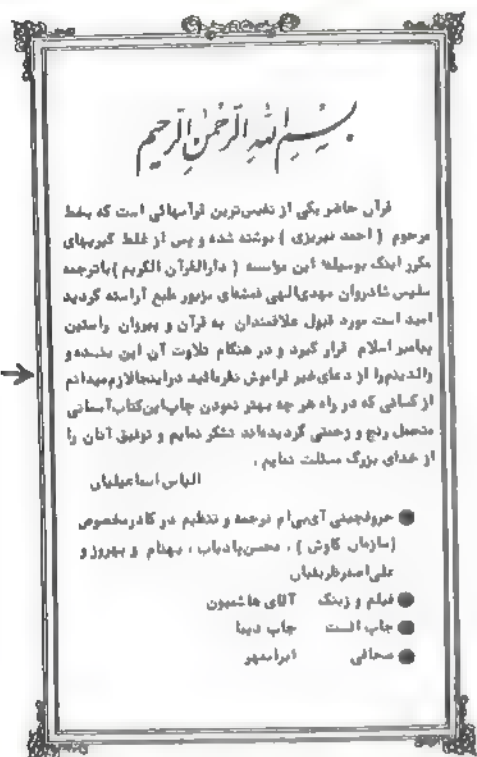 بسم الله الرحمن الرحیم
قرآن حاضر یکی از نفیس‌ترین قرآنهائی است که بخط
مرحوم ( احمد تبریزی ) نوشته شده و پس از غلط گیریهای
مکرر اینک بوسیله این مؤسسه ( دارالقرآن الکریم ) باترجمه
سلیس شادروان مهدی‌الهی قمشه‌ای مزبور طبع آراسته گردید
امید است مورد قبول علاقمندان به قرآن و پیروان راستین
پیامبر اسلام قرار گیرد و در هنگام تلاوت آن این بنده و
والدینم را از دعای خیر فراموش نفرمائید در اینجا لازم میدانم
از کسانی که در راه هر چه بهتر نمودن چاپ این کتاب آسمانی
متحمل رنج و زحمتی گردیده‌اند تشکر نمایم و توفیق آنان را
از خدای بزرگ مسئلت نمایم .
الیاس اسماعیلیان
● حروفچینی آی‌بی‌ام ترجمه و تنظیم در کادر مخصوص
(سازمان کاوش ) ، محسن بادیاب ، بهنام و بهروز و
علی‌اصغر ظریفیان
● فیلم و زینک آقای هاشمیون
● چاپ افست چاپ دیبا
● صحافی ایرانمهر